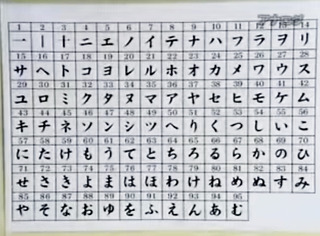 1 2 3 4 5 6 7 8 9 10 11 14
一 ｜ 十 ニ エ ノ イ テ ナ ハ フ ラ ヲ リ
15 16 17 18 19 20 21 22 23 24 25 26 27 28
サ ヘ ト コ ヨ レ ル ホ オ カ メ ワ ウ ス
29 30 31 32 33 34 35 36 37 38 39 40 41 42
ユ ロ ミ ク タ ヌ マ ア ヤ セ ヒ モ ケ ム
43 44 45 46 47 48 49 50 51 52 53 54 55 56
キ チ ネ ソ ン シ ツ へ り く つ し い こ
57 58 59 60 61 62 63 64 65 66 67 68 69 70
に た け も う て と ち ろ る ら か の ひ
71 72 73 74 75 76 77 78 79 80 81 82 83 84
せ さ き よ ま は ほ わ け ね め ぬ す み
85 86 87 88 89 90 91 92 93 94 95
や そ な お ゆ を ふ え ん あ む